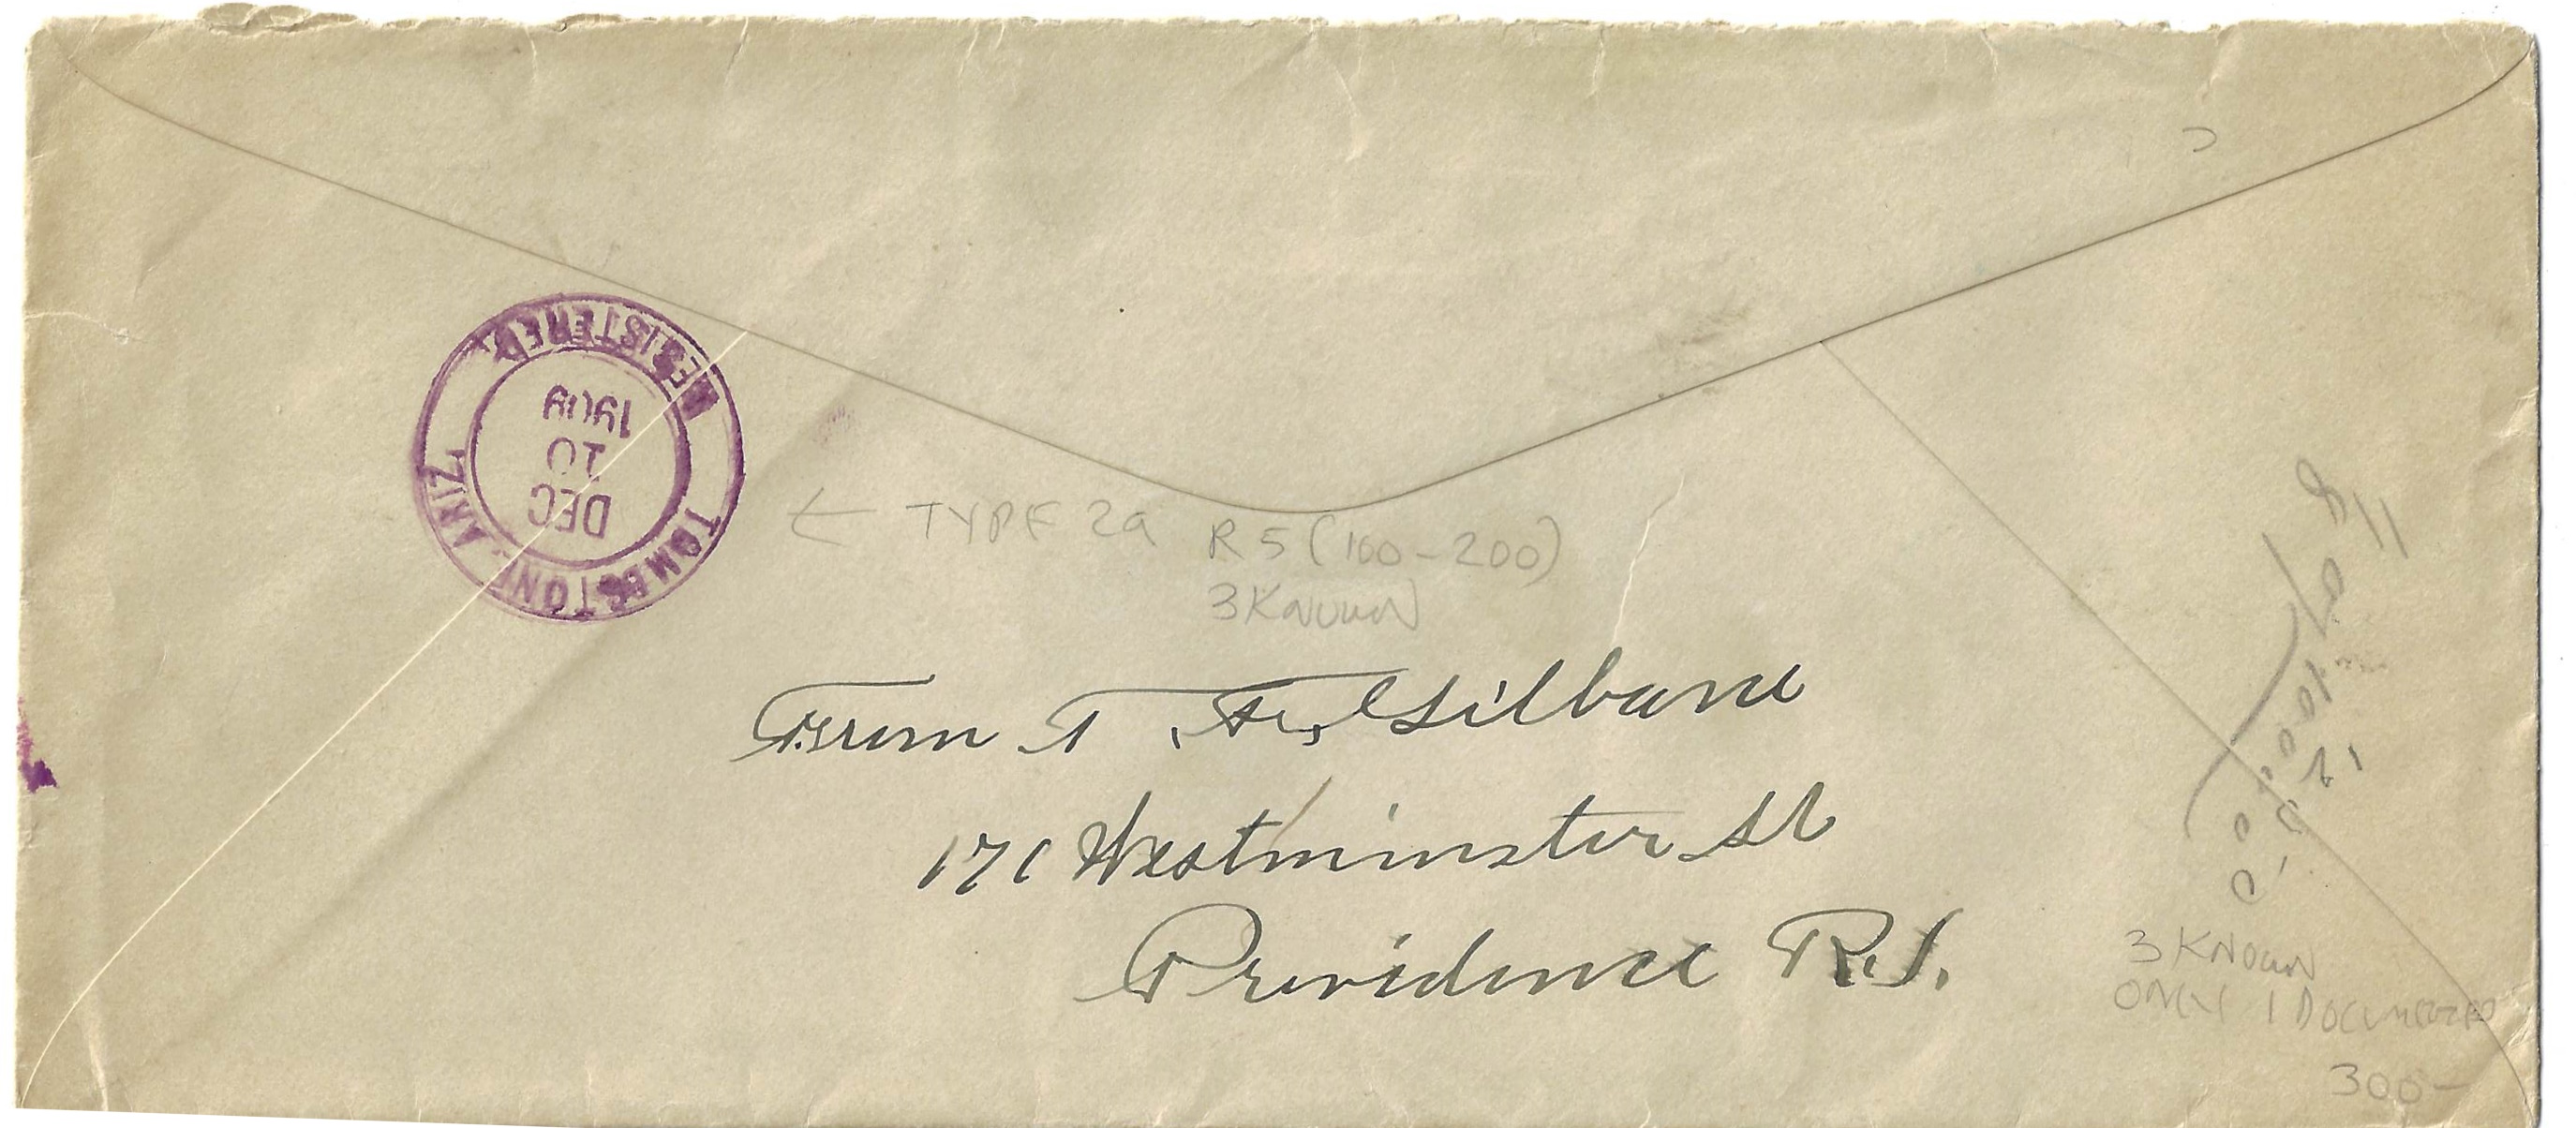 REGISTERED
DEC
10
1909
TOMBSTONE ARIZ.
← TYPE 2a R5 (100-200)
3 KNOWN
From T
171 Westminster St
Providence R.I.
3 KNOWN
ONLY 1 DOCUMENTED
300-